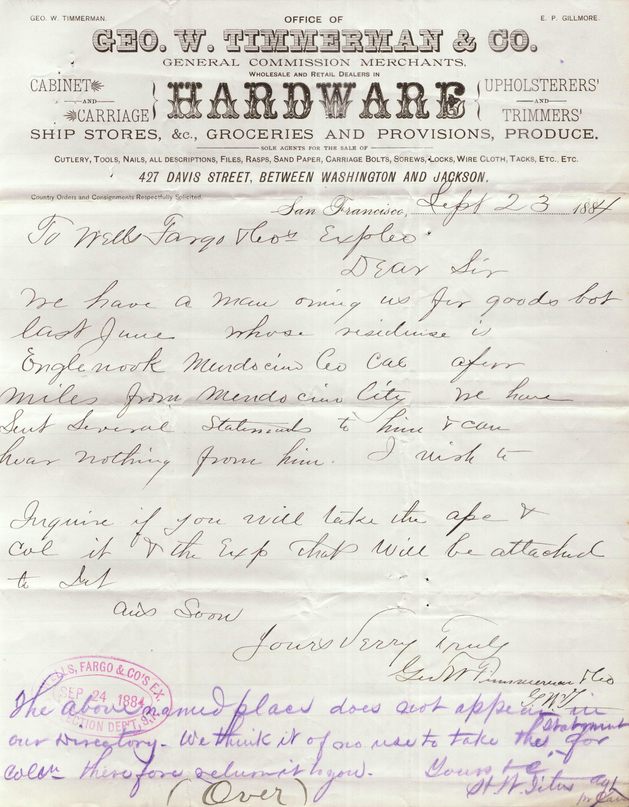 GEO. W. TIMMERMAN. OFFICE OF E. P. GILLMORE.
GEO. W. TIMMERMAN & CO.
GENERAL COMMISSION MERCHANTS,
WHOLESALE AND RETAIL DEALERS IN
CABINET AND CARRIAGE HARDWARE UPHOLSTERERS' AND TRIMMERS'
SHIP STORES, &c., GROCERIES AND PROVISIONS, PRODUCE.
SOLE AGENTS FOR THE SALE OF
CUTLERY, TOOLS, NAILS, ALL DESCRIPTIONS, FILES, RASPS, SAND PAPER, CARRIAGE BOLTS, SCREWS, LOCKS, WIRE CLOTH, TACKS, ETC., ETC.
427 DAVIS STREET, BETWEEN WASHINGTON AND JACKSON.
Country Orders and Consignments Respectfully Solicited.
San Francisco, Sept 23 1884
To Wells Fargo & Cos Exp Co
Dear Sir
We have a man owing us for goods bot
last June whose residence is
Englenook Mendocino Co Cal a few
miles from Mendocino City we have
Sent Several Statements to him & can
hear nothing from him. I wish to
Inquire if you will take the apc &
Col it & the Exp that Will be attached
to Int
ans Soon
Yours Verry Truly
Geo W Timmerman & Co
G.W.T
WELLS, FARGO & CO'S EX.
SEP 24 1884
COLLECTION DEP'T, S.F.
The above named place does not appear in
our Directory. We think it of no use to take the statement for
coln therefore return it to you. Yours &c
Agt
(Over)